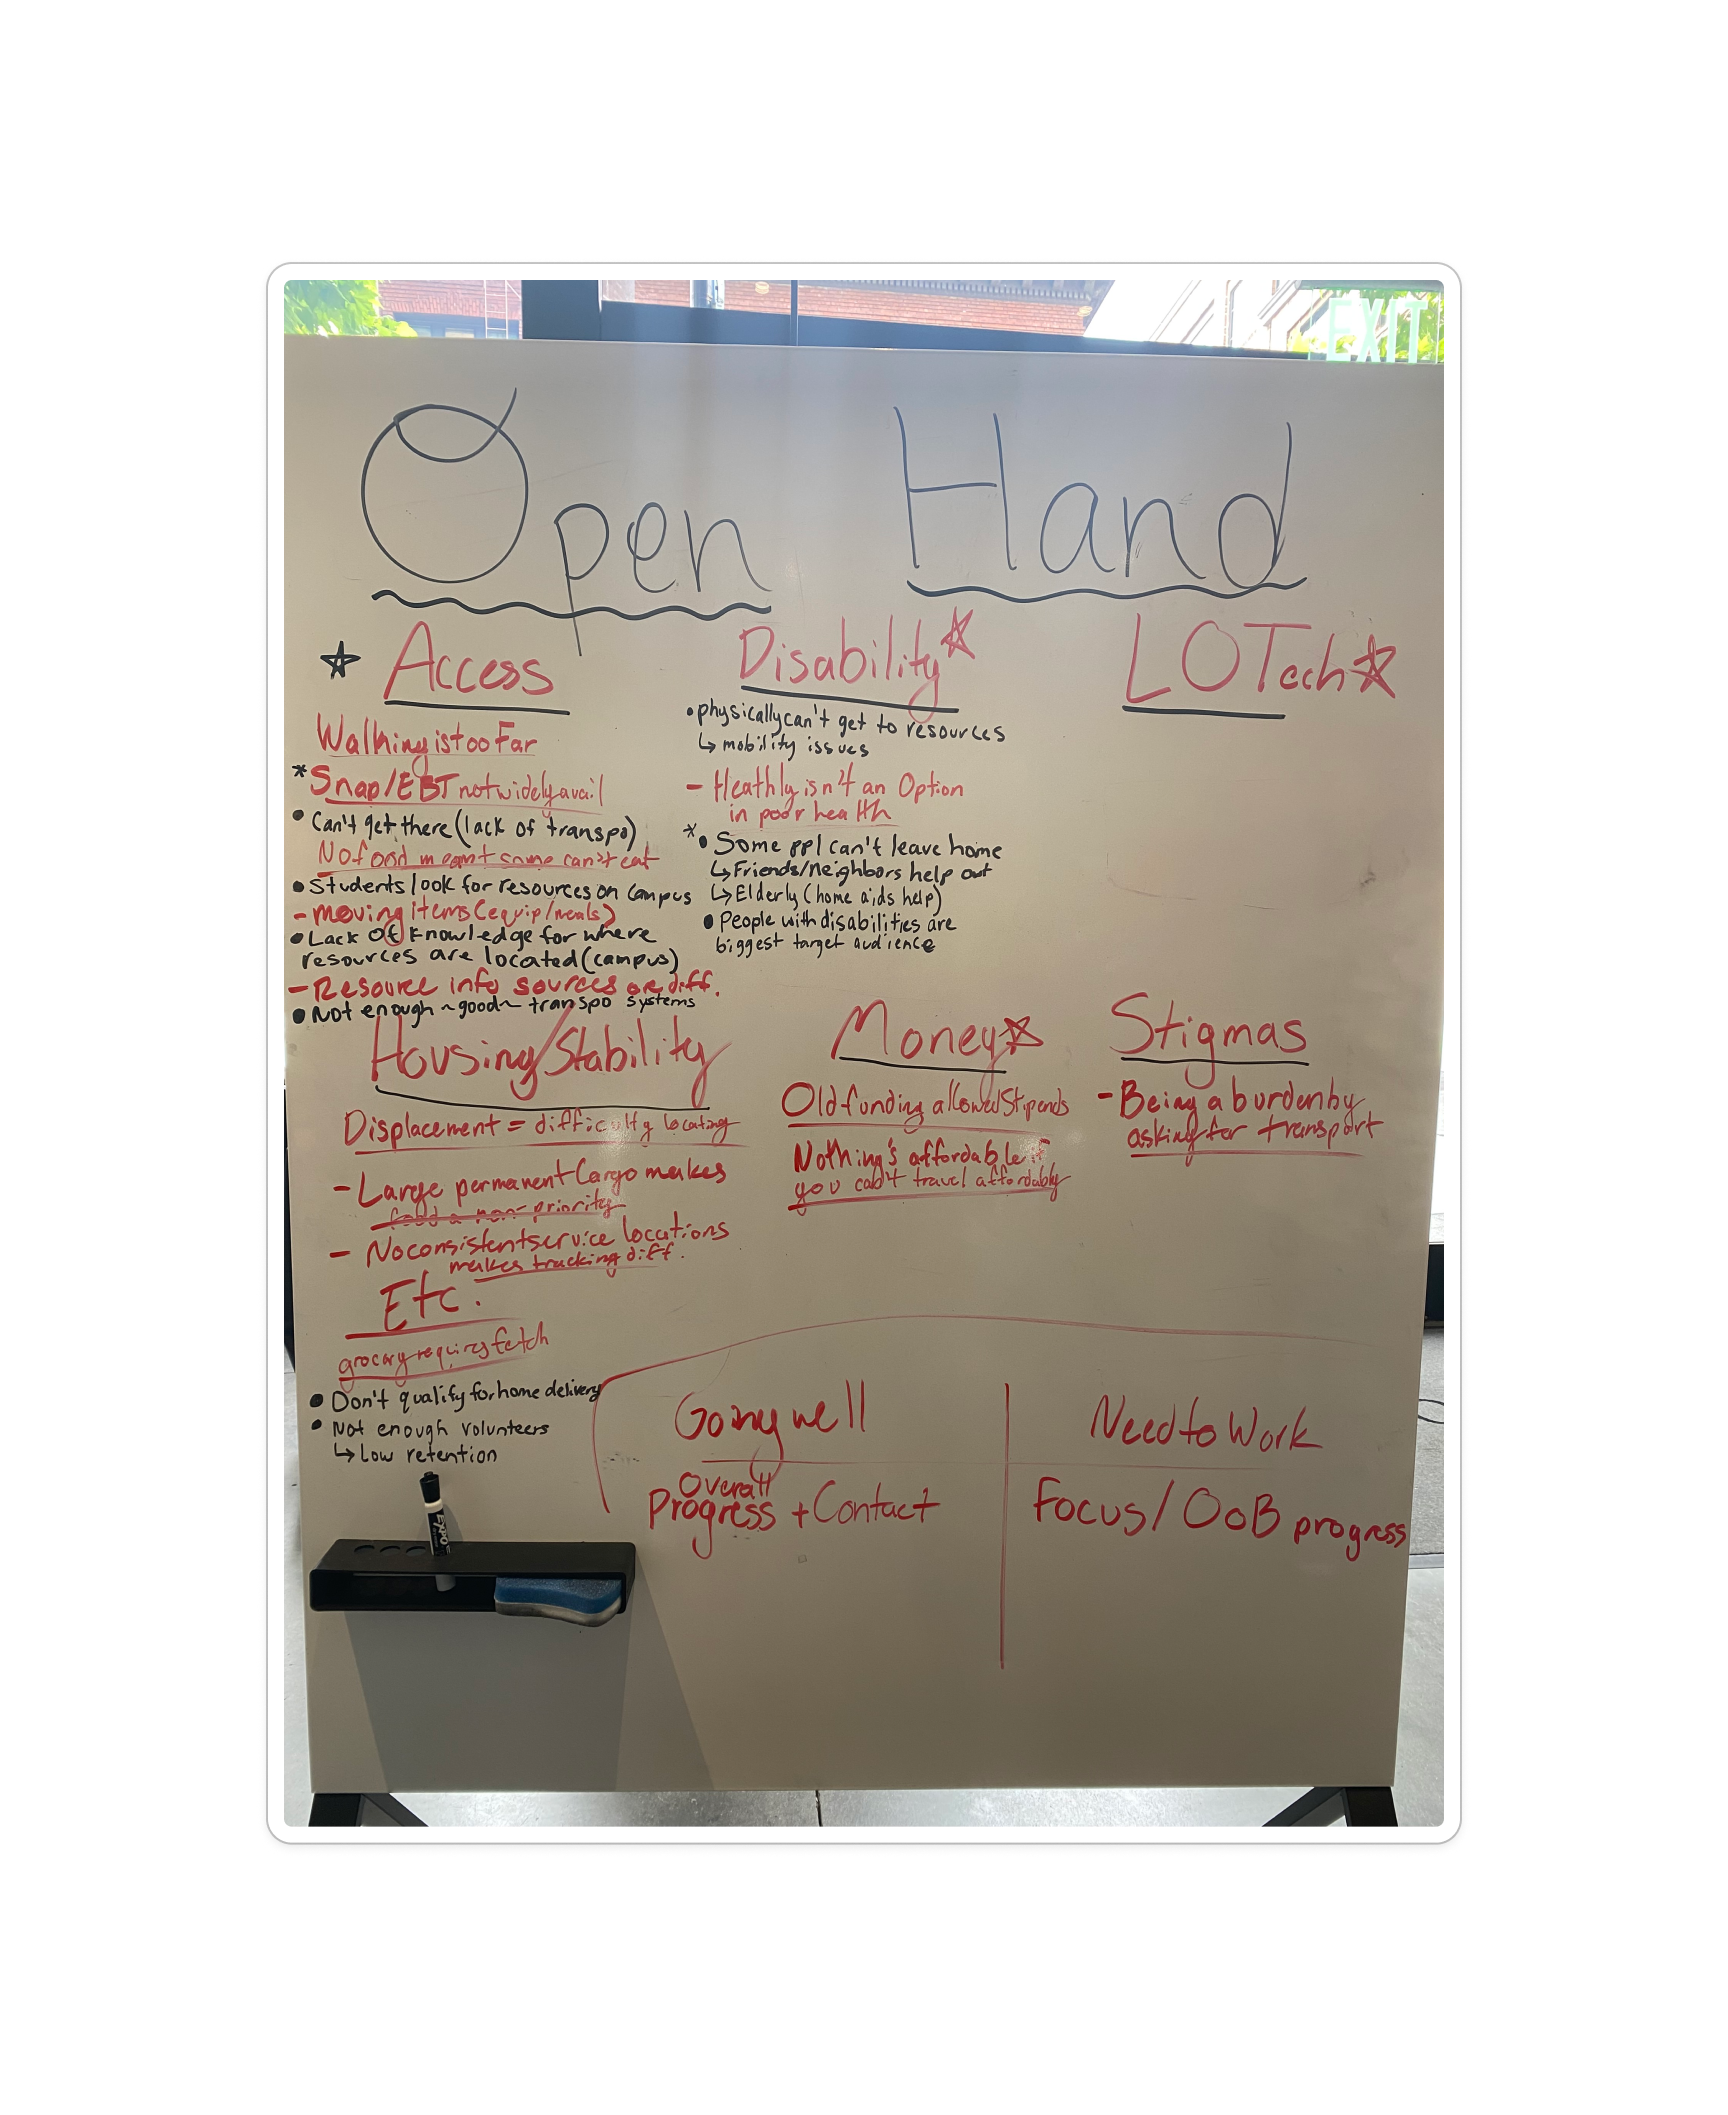 EXIT
Open Hand
Access
Walking is too Far
* Snap/EBT not widely avail
• Can't get there (lack of transpo)
No food meant some can't eat
• Students look for resources on campus
- moving items (equip/meals)
• Lack of knowledge for where
resources are located (campus)
- Resource info sources are diff.
• Not enough ~good~ transpo systems
Disability
• physically can't get to resources
↳ mobility issues
- Heathly isn't an Option
in poor health
* • Some ppl can't leave home
↳ Friends/neighbors help out
↳ Elderly (home aids help)
• People with disabilities are
biggest target audience
LO Tech
Housing/Stability
Displacement = difficulty locating
- Large permanent Cargo makes
food a non-priority
- No consistent service locations
makes tracking diff.
Money
Old funding allowed Stipends
Nothing's affordable if
you can't travel affordably
Stigmas
- Being a burden by
asking for transport
Etc.
grocery requires fetch
• Don't qualify for home delivery
• Not enough volunteers
↳ Low retention
Going well
Overall
Progress + Contact
Need to Work
Focus/ OoB progress
EXPO